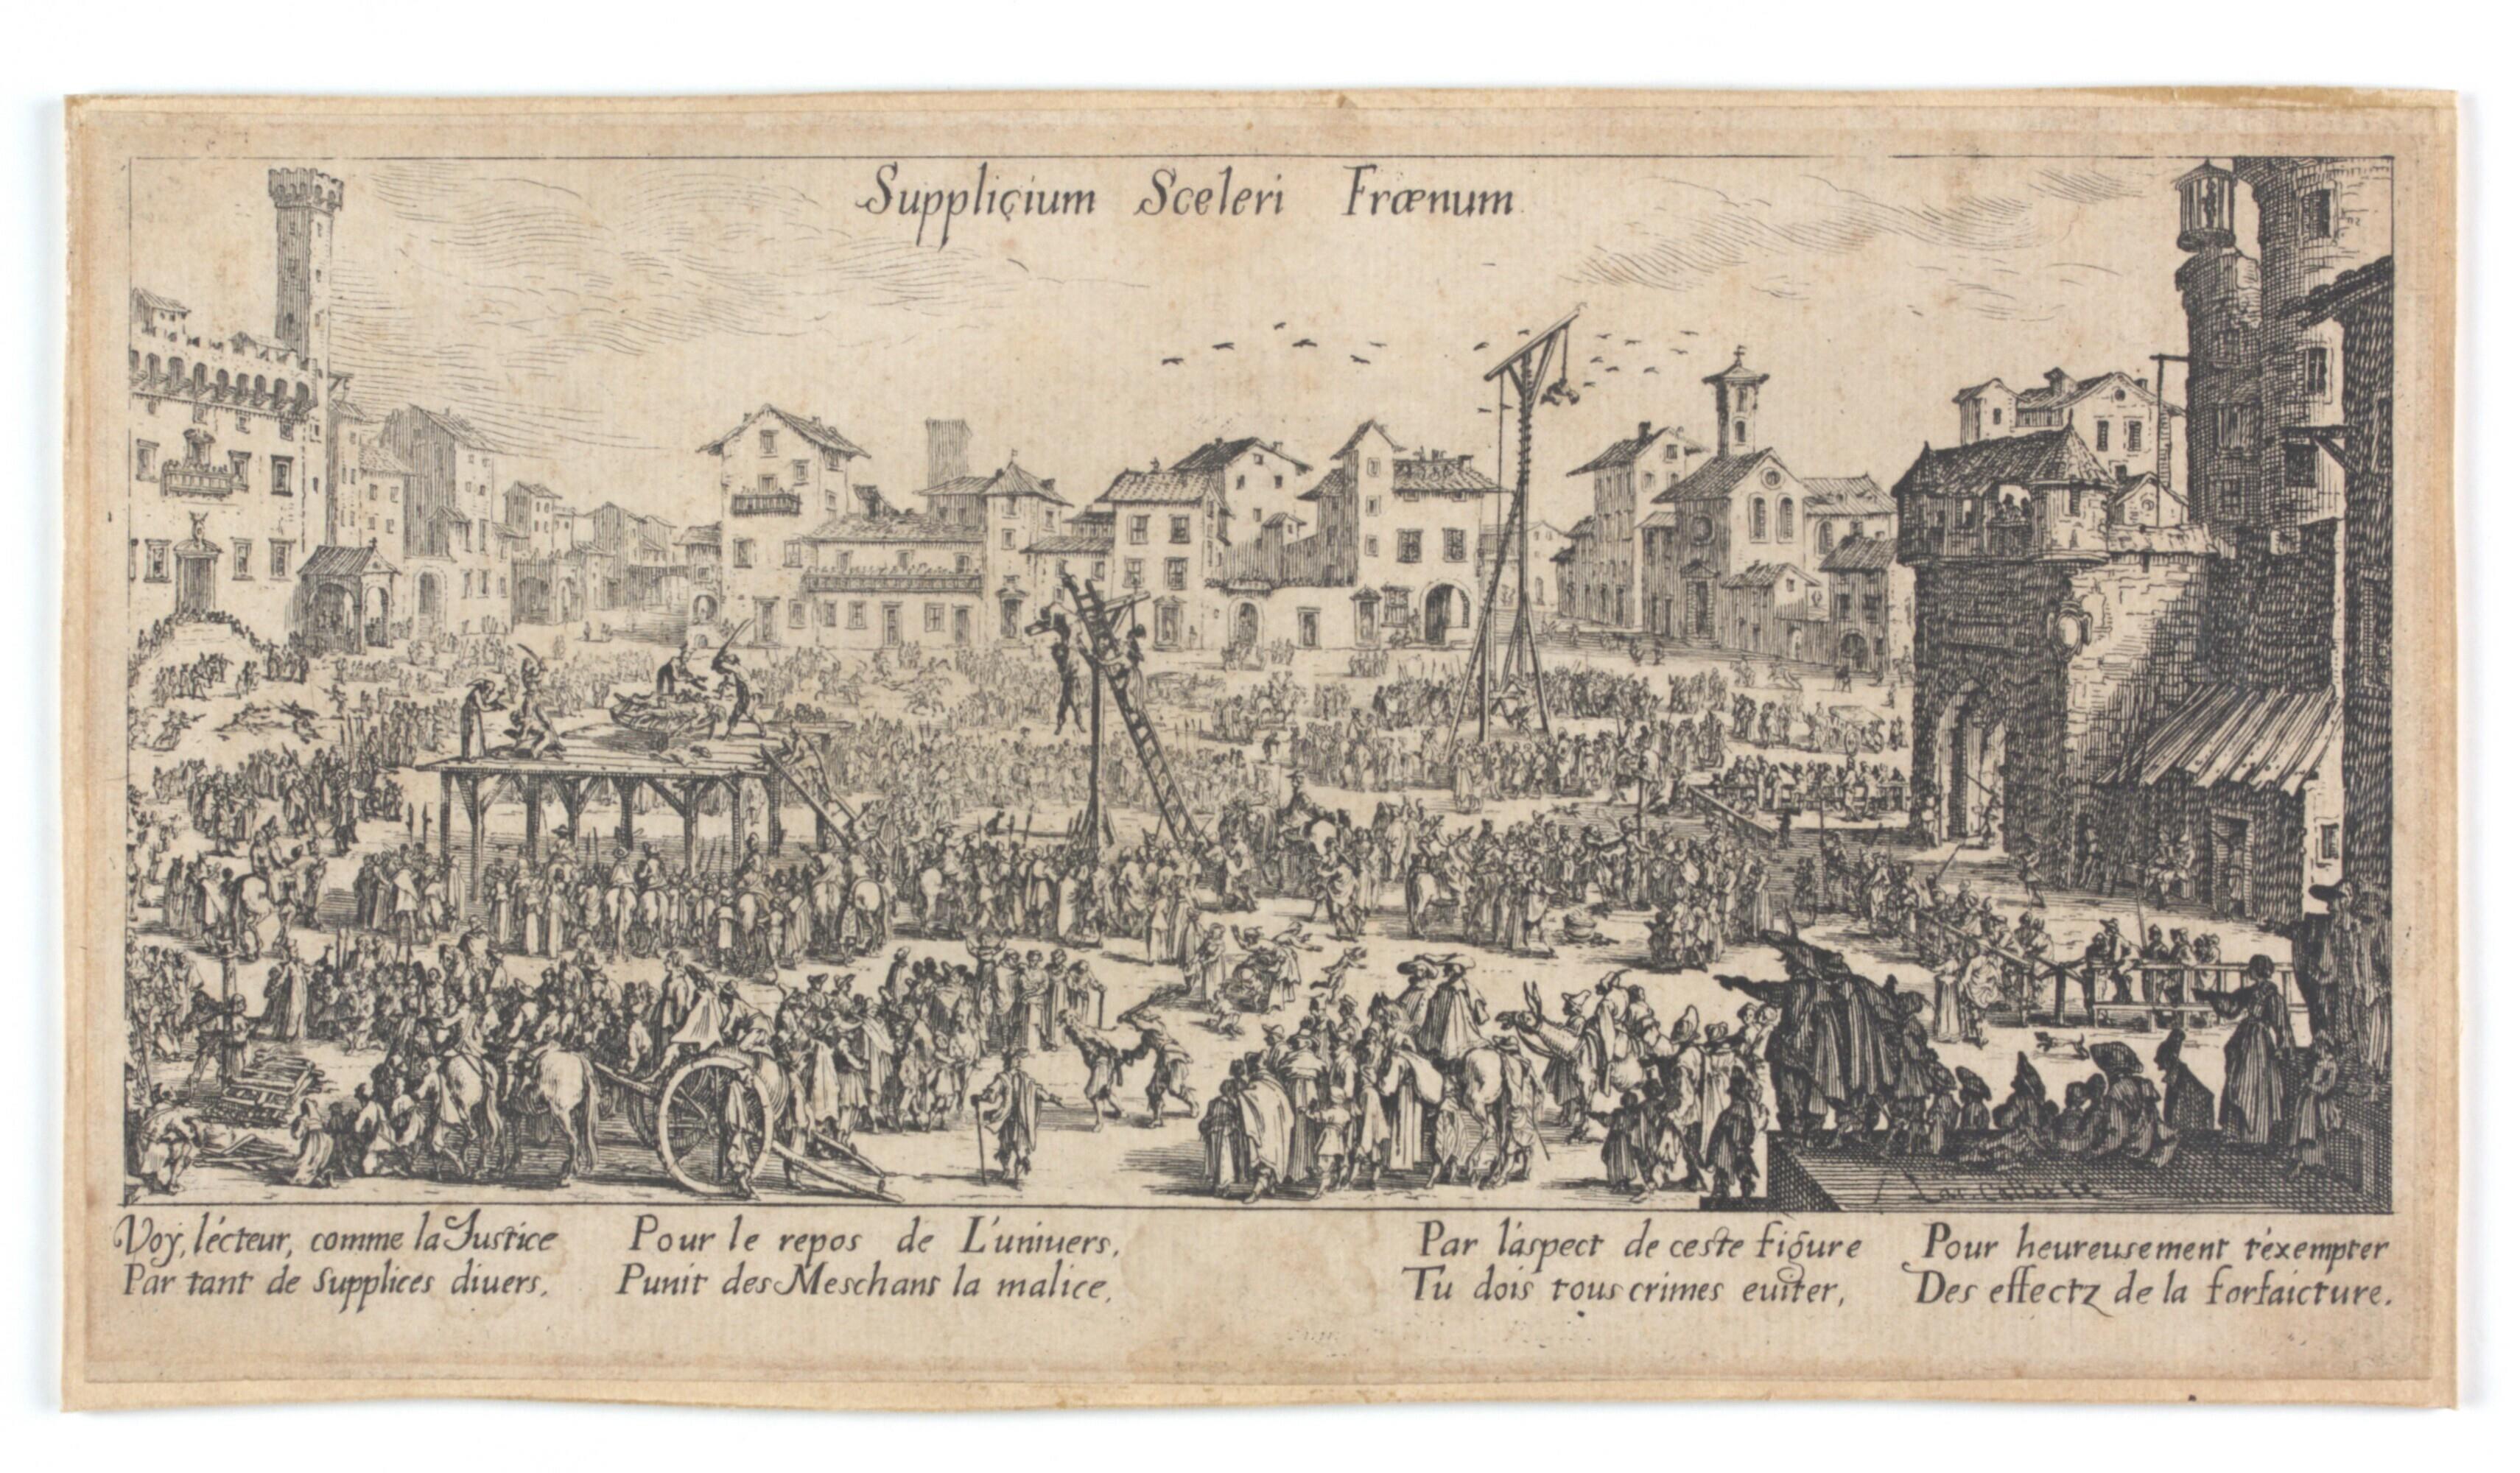 Suppliçium Sceleri Frænum
Voy, lécteur, comme la Justice
Par tant de Supplices diuers,
Pour le repos de L'uniuers,
Punit des Meschans la malice,
Par l'aspect de ceste figure
Tu dois tous crimes euiter,
Pour heureusement t'exempter
Des effectz de la forfaicture.